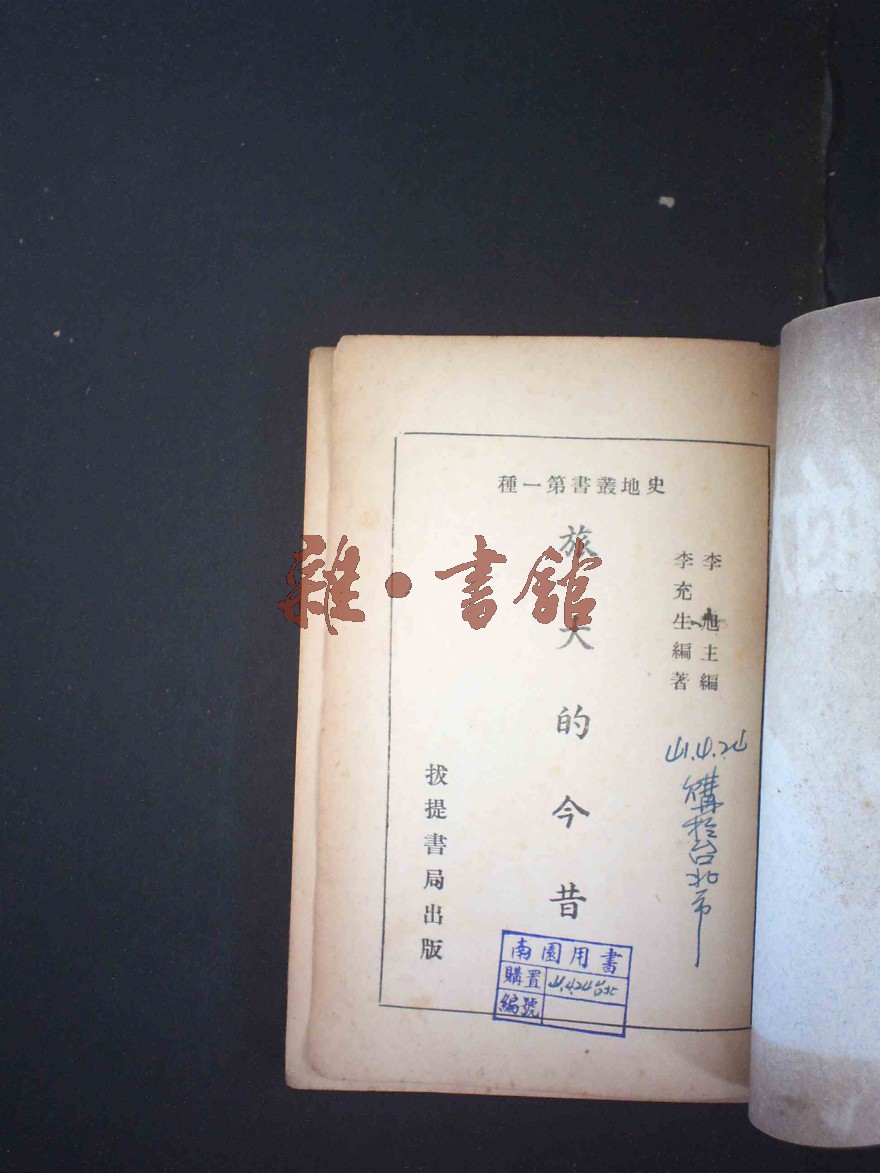 史地叢書第一種
李旭主編
李充生編著
旅大的今昔
拔提書局出版
41.4.24
購於台北市
南園用書
購置 41.4.24 台北
編號
雜·書館